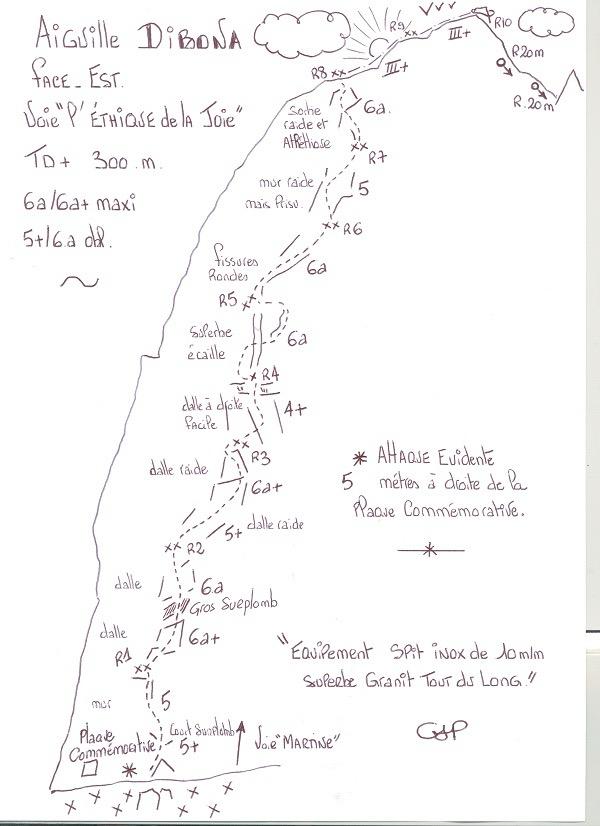 Aiguille DIBONA
FACE - EST.
Voie "l'ÉTHIQUE de la Joie"
TD+ 300 m.
6a/6a+ maxi
5+/6a obl.
R9
III+
R10
R20m
R.20m
R8
III+
Sortie
raide et
Athlétique
6a.
R7
mur raide
mais Prisu.
5
R6
fissures
Rondes
6a
R5
Superbe
écaille
6a
R4
dalle à droite
facile
4+
R3
dalle raide
6a+
5+
dalle raide
R2
dalle
6a
Gros Surplomb
dalle
6a+
R1
mur
5
Court Surplomb
5+
Plaque
Commémorative
Voie "MARTINE"
* Attaque Evidente
5 mètres à droite de la
Plaque Commémorative.
"Equipement Spit inox de 10 m/m
Superbe Granit Tout du Long."